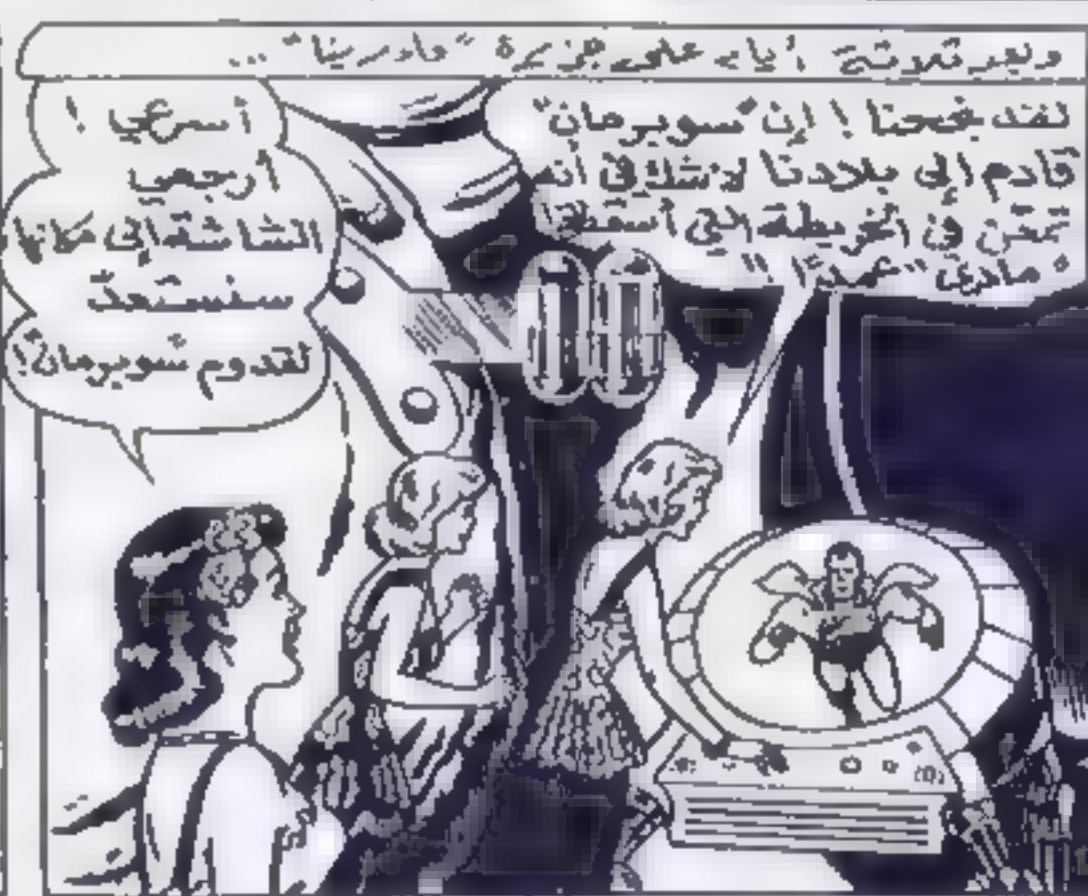 وبعد ثلاثة أيام على جزيرة "مادرينا"...
لقد نجحنا! إن "سوبرمان"
قادم إلى بلادنا لاشك في أنه
تمعّن في الخريطة التي أسقطتها
"مادي" عمدًا"
أسرعي!
أرجعي
الشاشة إلى مكانها
سنستعدّ
لقدوم "سوبرمان"!